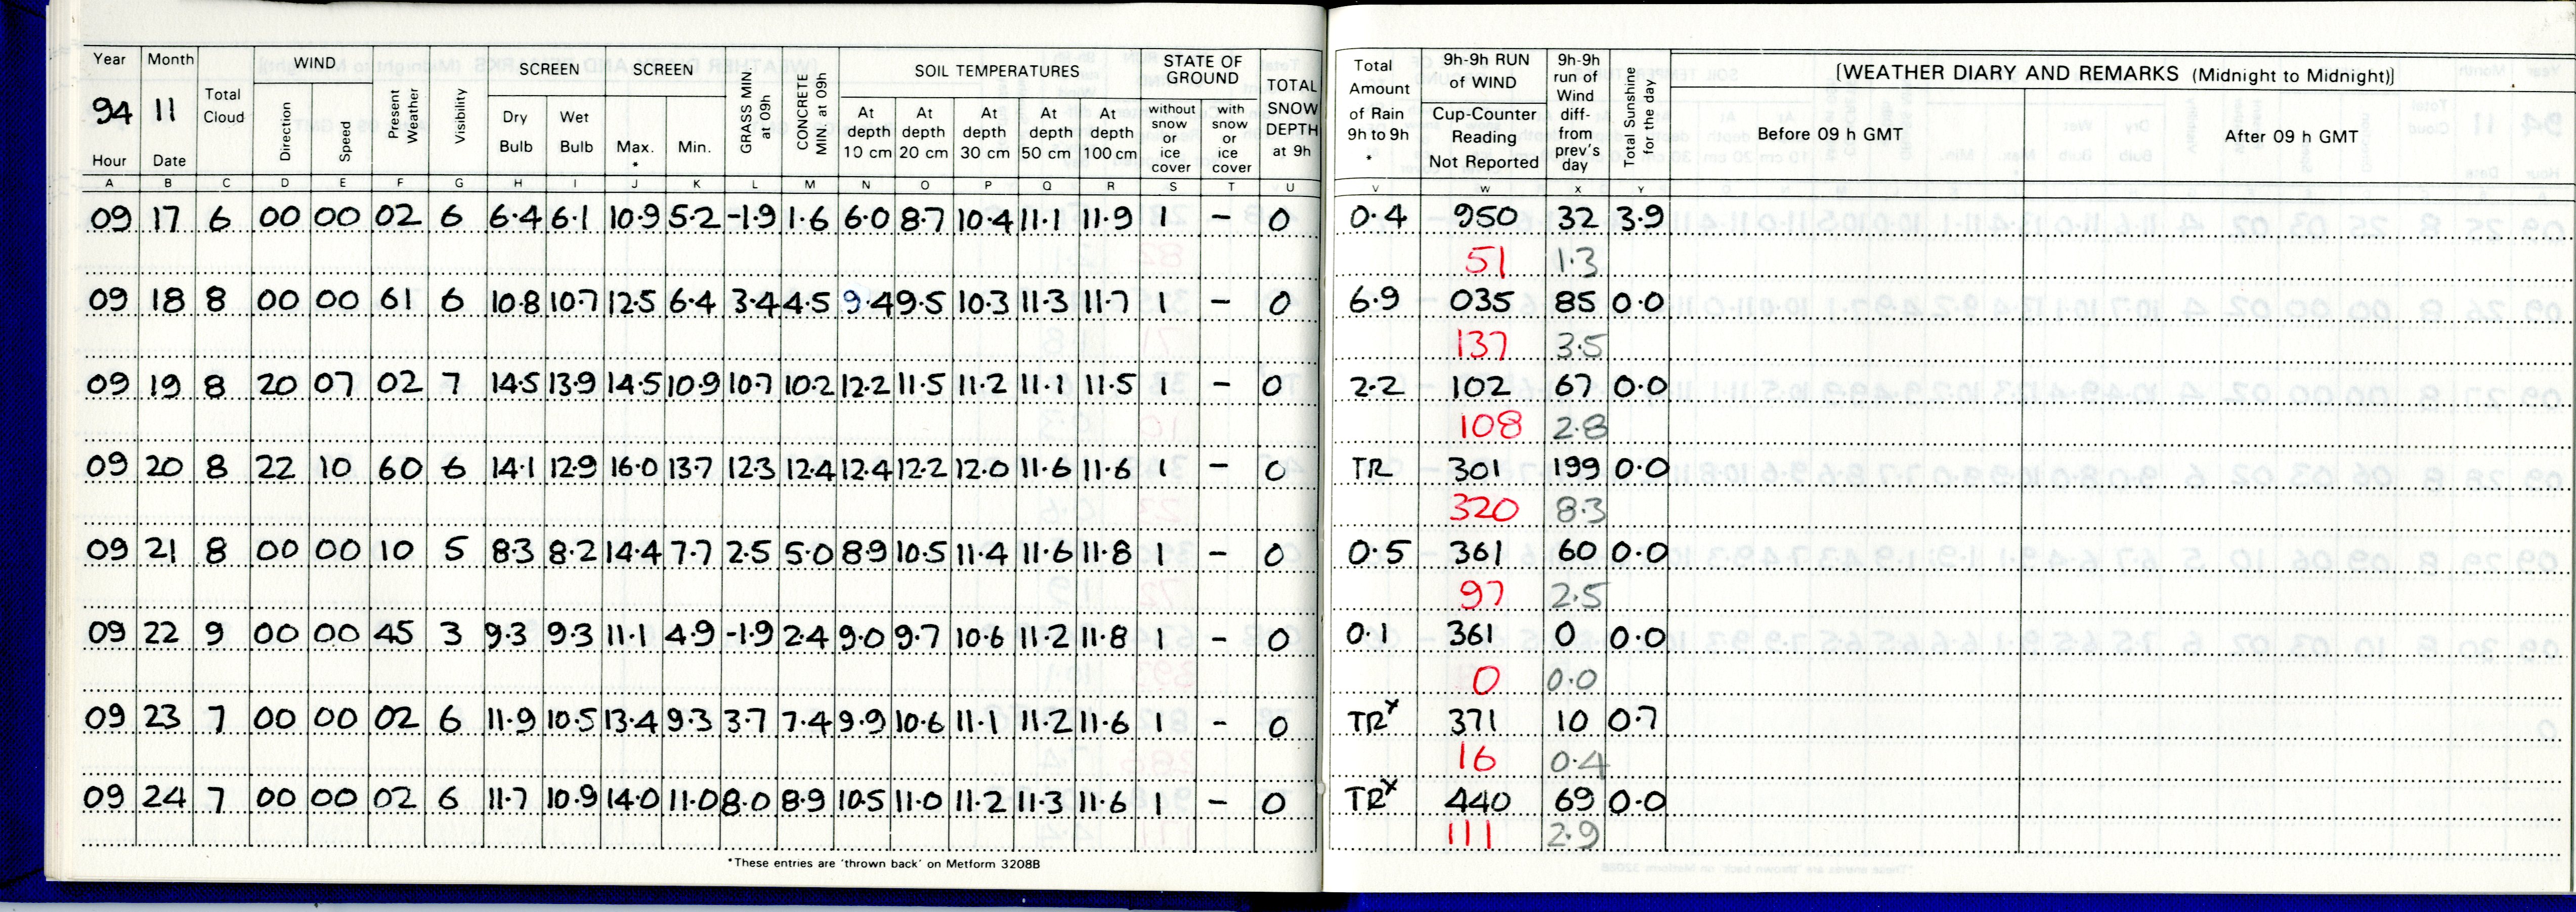 Year Month Total Cloud WIND Present Weather Visibility SCREEN SCREEN GRASS MIN at 09h CONCRETE MIN. at 09h SOIL TEMPERATURES STATE OF GROUND TOTAL SNOW DEPTH at 9h Total Amount of Rain 9h to 9h * 9h-9h RUN of WIND 9h-9h run of Wind diff- from prev's day Total Sunshine for the day [WEATHER DIARY AND REMARKS (Midnight to Midnight)]
94 11 Direction Speed Dry Bulb Wet Bulb Max. * Min. At depth 10 cm At depth 20 cm At depth 30 cm At depth 50 cm At depth 100 cm without snow or ice cover with snow or ice cover Cup-Counter Reading Not Reported Before 09 h GMT After 09 h GMT
Hour Date
A B C D E F G H I J K L M N O P Q R S T U V W X Y
09 17 6 00 00 02 6 6.4 6.1 10.9 5.2 -1.9 1.6 6.0 8.7 10.4 11.1 11.9 1 - 0 0.4 950 32 3.9
51 1.3
09 18 8 00 00 61 6 10.8 10.7 12.5 6.4 3.4 4.5 9.4 9.5 10.3 11.3 11.7 1 - 0 6.9 035 85 0.0
137 3.5
09 19 8 20 07 02 7 14.5 13.9 14.5 10.9 10.7 10.2 12.2 11.5 11.2 11.1 11.5 1 - 0 2.2 102 67 0.0
108 2.8
09 20 8 22 10 60 6 14.1 12.9 16.0 13.7 12.3 12.4 12.4 12.2 12.0 11.6 11.6 1 - 0 TR 301 199 0.0
320 8.3
09 21 8 00 00 10 5 8.3 8.2 14.4 7.7 2.5 5.0 8.9 10.5 11.4 11.6 11.8 1 - 0 0.5 361 60 0.0
97 2.5
09 22 9 00 00 45 3 9.3 9.3 11.1 4.9 -1.9 2.4 9.0 9.7 10.6 11.2 11.8 1 - 0 0.1 361 0 0.0
0 0.0
09 23 7 00 00 02 6 11.9 10.5 13.4 9.3 3.7 7.4 9.9 10.6 11.1 11.2 11.6 1 - 0 TRx 371 10 0.7
16 0.4
09 24 7 00 00 02 6 11.7 10.9 14.0 11.0 8.0 8.9 10.5 11.0 11.2 11.3 11.6 1 - 0 TRx 440 69 0.0
111 2.9
*These entries are 'thrown back' on Metform 3208B